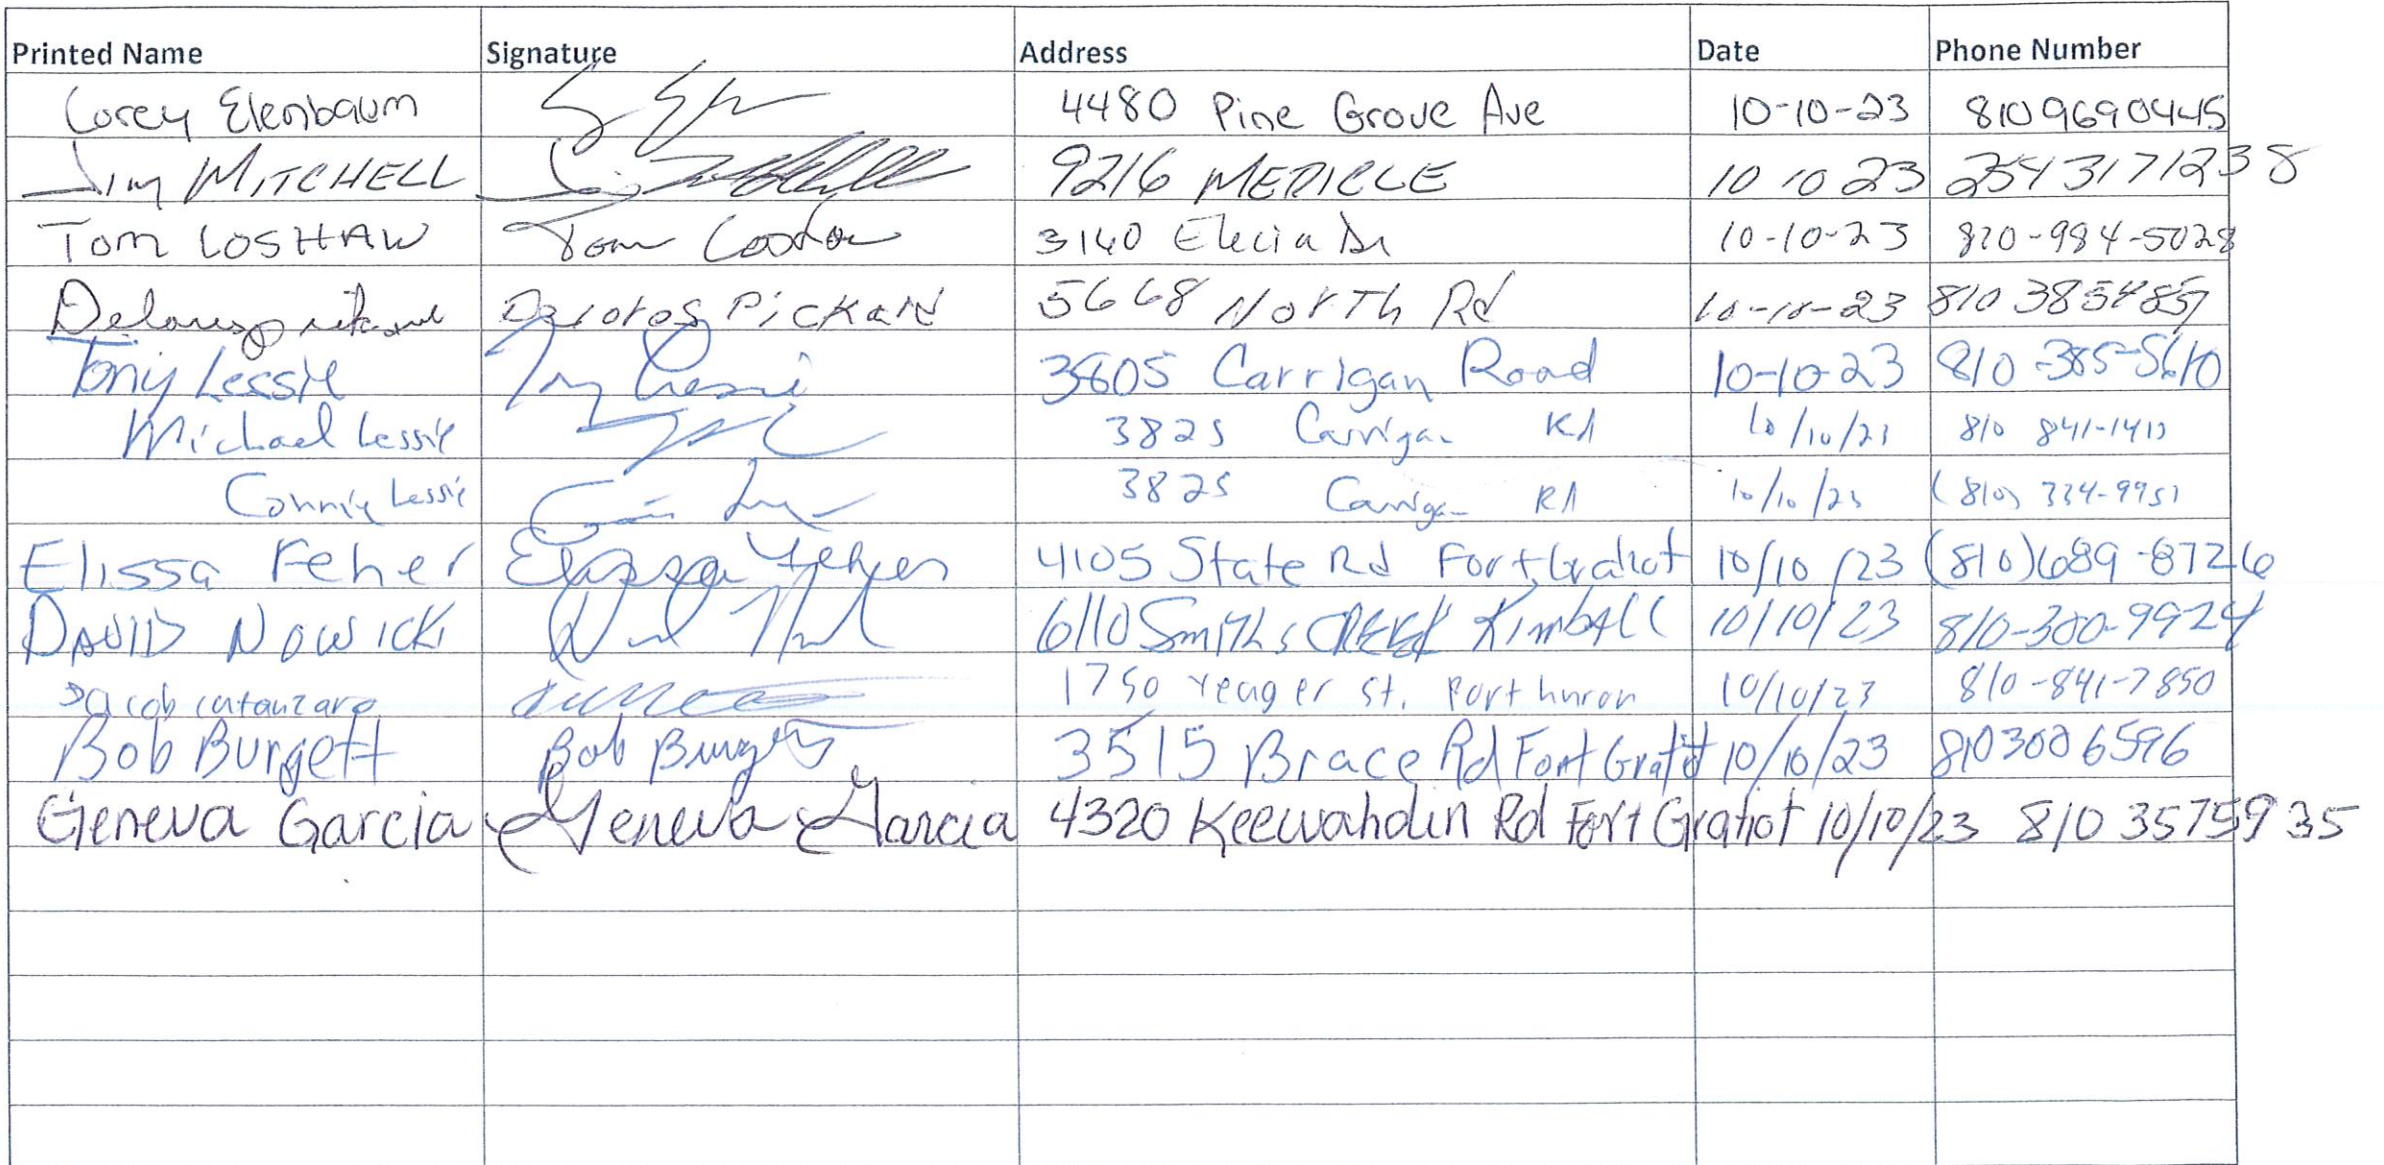 Printed Name Signature Address Date Phone Number
Corey Elenbaum 4480 Pine Grove Ave 10-10-23 8109690445
Jim MITCHELL 9216 MERICLE 10 10 23 2543171238
TOM LOSHAW Tom Loshaw 3140 Elecia Dr 10-10-23 810-984-5028
Delores Pickard 5668 NorTh Rd 10-10-23 810
Tony Lessie Tony Lessie Carrigan Road 10-10-23 810-385-5610
Michael Lessie 3825 Carrigan Rd 10/10/23 810 841-1413
Connie Lessie 3825 Carrigan Rd 10/10/23 (810) 334-9951
Elissa Feher Elissa Feher 4105 State Rd Fort Gratiot 10/10/23 (810)689-8726
DAVID NOWICKI 6110 Smiths CREEK KimbAll 10/10/23 810-300-9924
Jacob catanzaro 1750 Yeager St. Port huron 10/10/23 810-841-7850
Bob Burgett Bob Burgett 3515 Brace Rd Fort Gratiot 10/10/23 8103006596
Geneva Garcia Geneva Garcia 4320 Keewahdin Rd Fort Gratiot 10/10/23 810 3575935